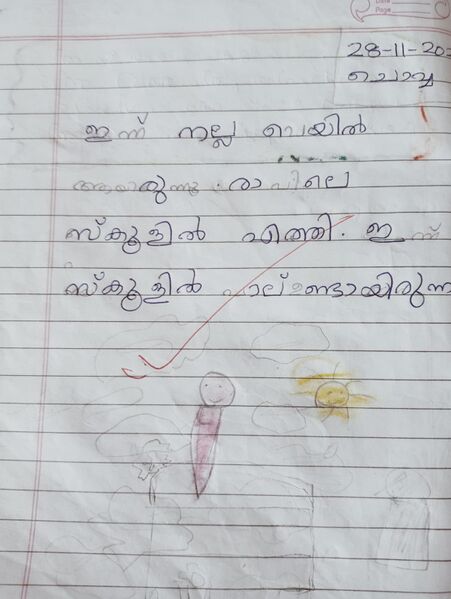 Date
Page
28-11-20
ചൊവ്വ
ഇന്ന് നല്ല വെയിൽ
ആയിരുന്നു. രാവിലെ
സ്കൂളിൽ എത്തി. ഇന്ന്
സ്കൂളിൽ പാല് ഉണ്ടായിരുന്ന